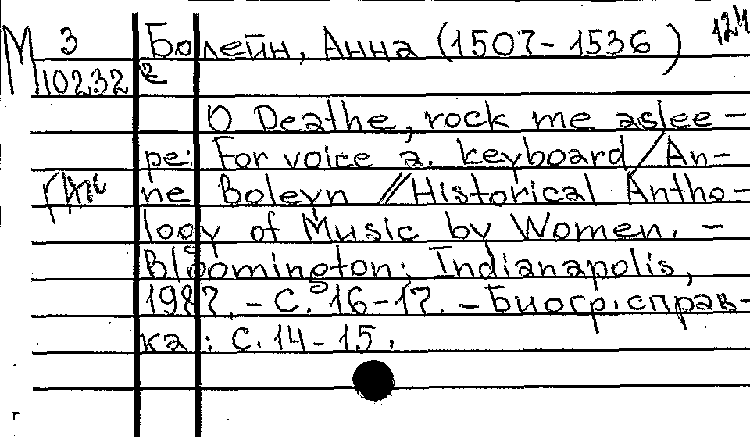 М 3 Болейн, Анна (1507-1536) 124
10232
O Deathe, rock me aslee-
pe: For voice a. keyboard/An-
ne Boleyn //Historical Antho-
logy of Music by Women. -
Bloomington; Indianapolis,
1987. - С. 16-17. - Биогр. справ-
ка: С. 14-15.